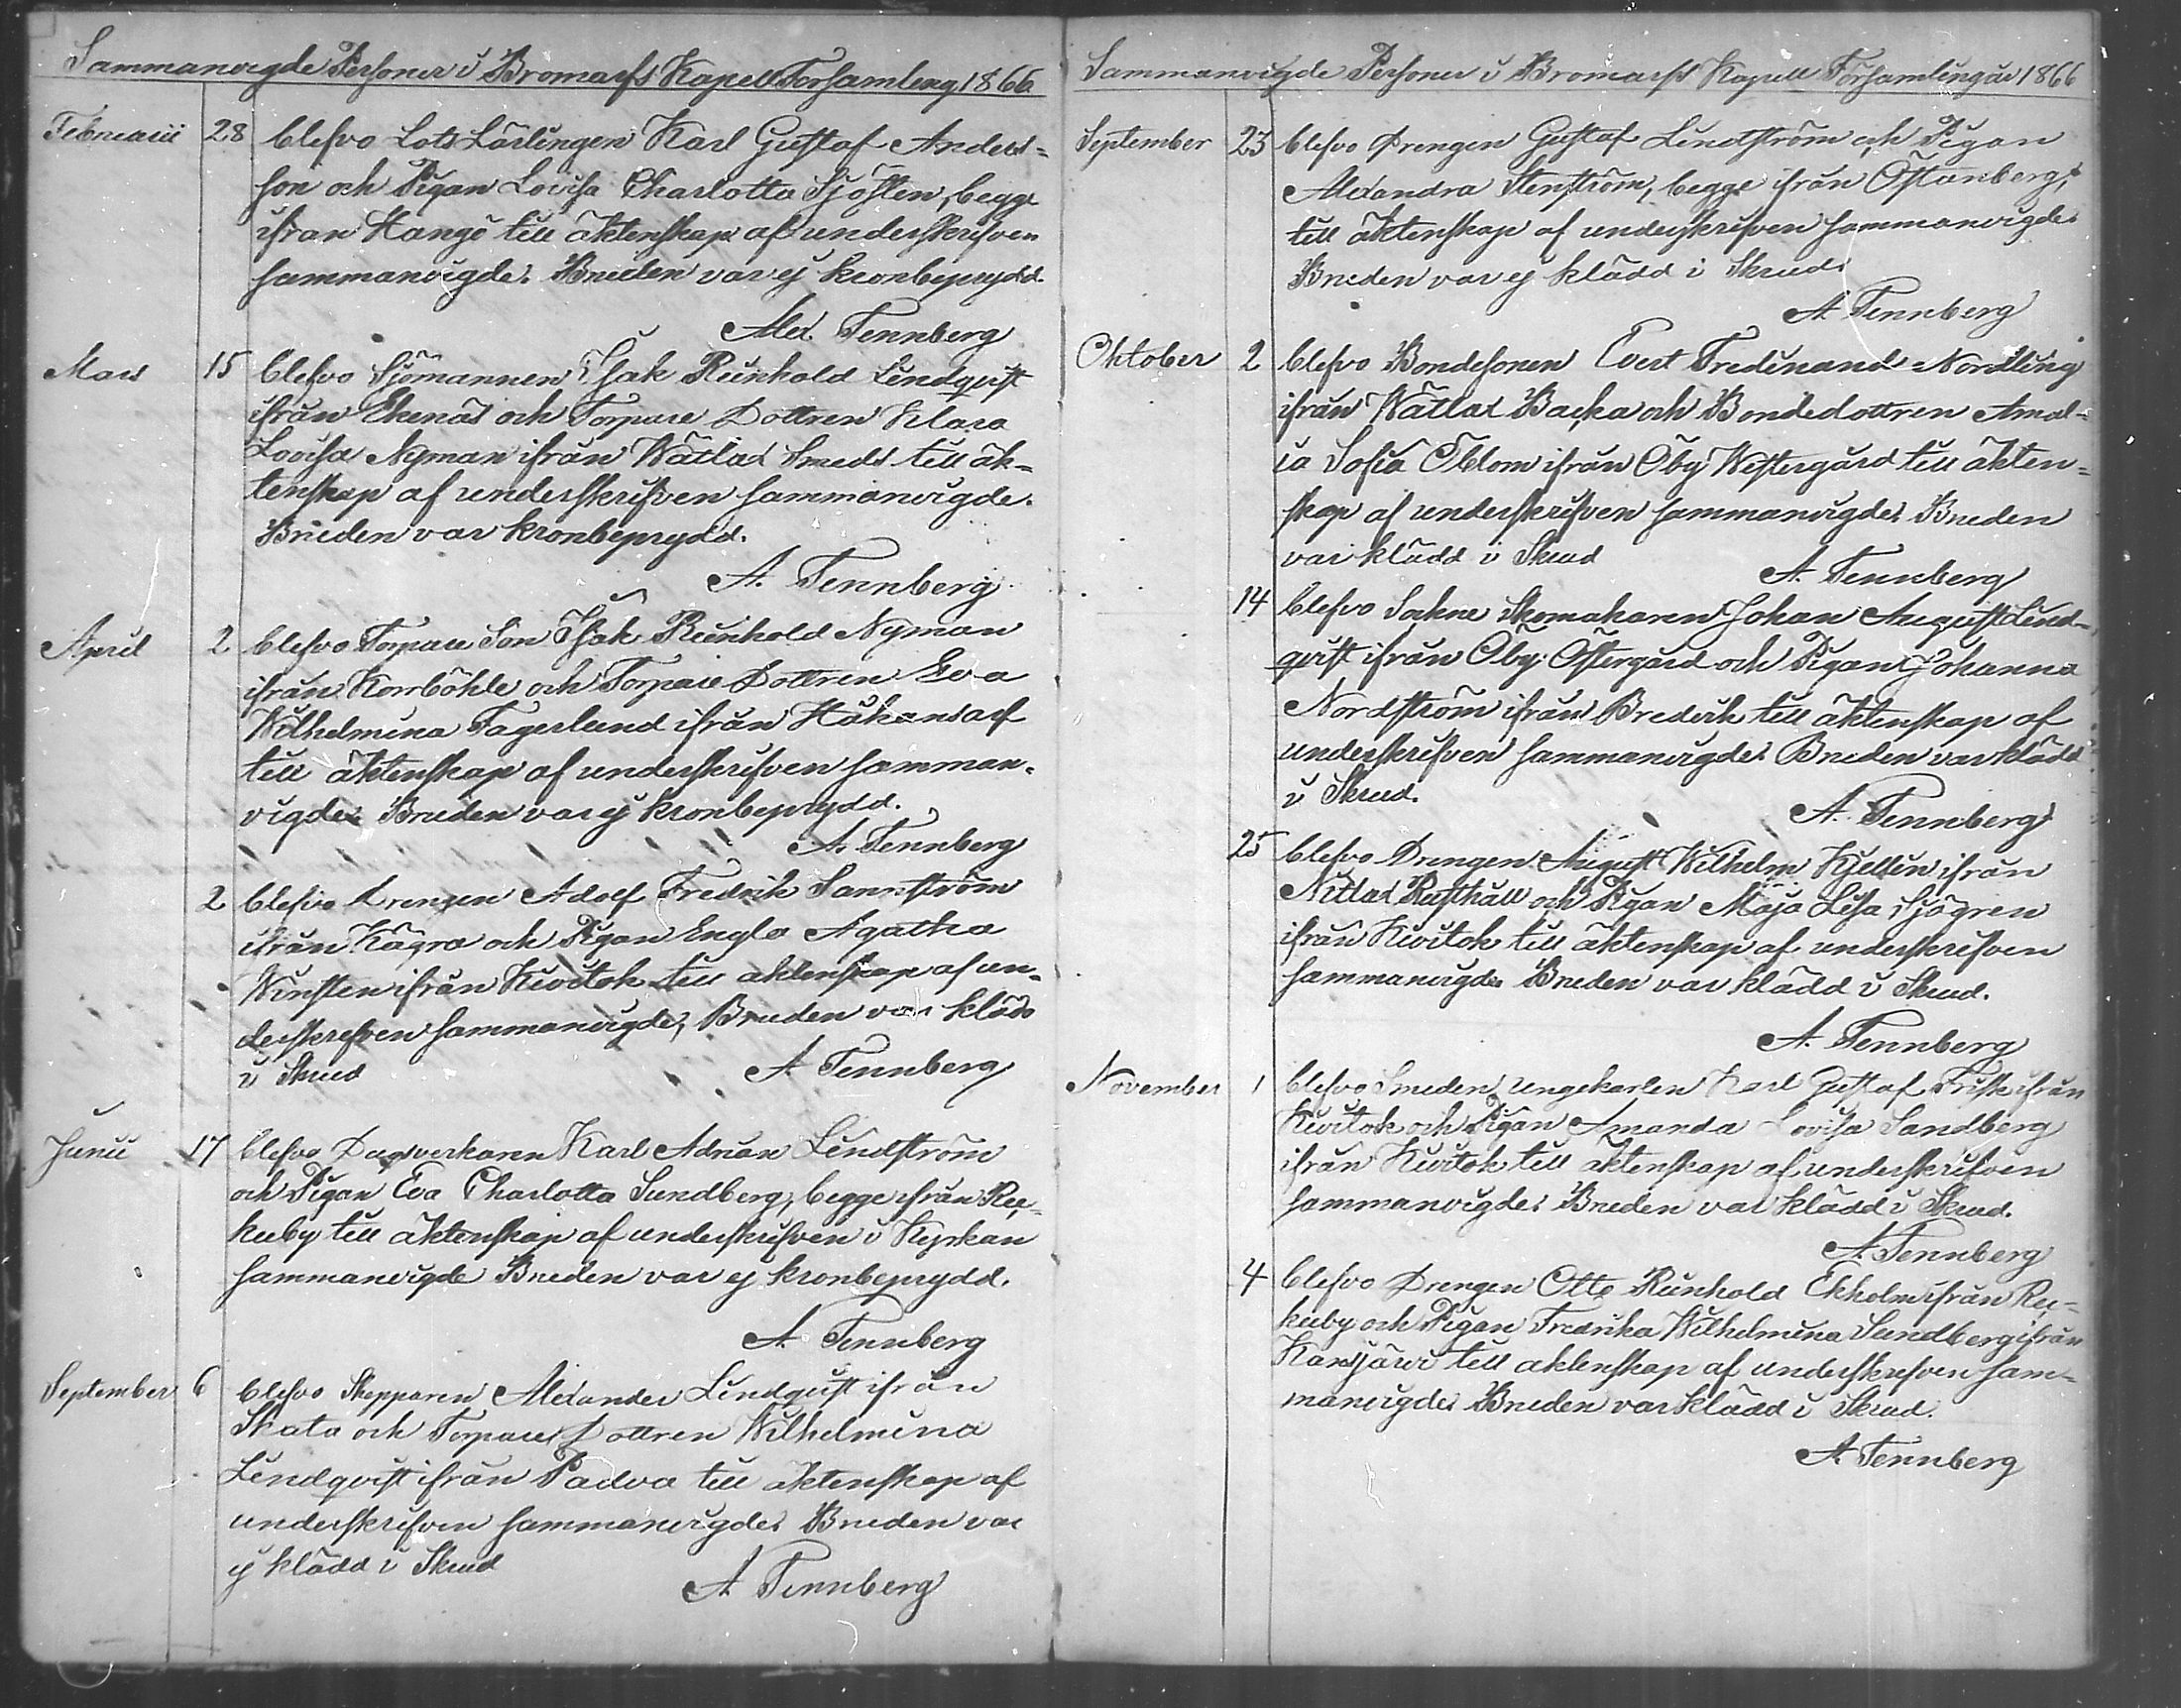 Sammanvigde Personer i Bromarfs Kapell Församling 1866
Februarii 28 Blefvo Lots Lärlingen Karl Gustaf Anders-
son och Pigan Lovisa Charlotta Sjösten, begge
ifrån Hangö till äktenskap af underskrifven
sammanvigde. Bruden var ej kronbeprydd.
Alex. Tennberg
Mars 15 Blefvo Sjömannen Isak Reinhold Lindqvist
ifrån Ekenäs och Torpare Dottren Klara
Lovisa Nyman ifrån Wättlax Smeds till äk-
tenskap af underskrifven sammanvigde.
Bruden var kronbeprydd.
A. Tennberg
April 2 Blefvo Torpare Son Isak Reinhold Nyman
ifrån Korrböhle och Torpare Dottren Eva
Wilhelmina Fagerlund ifrån Håkansarf
till äktenskap af underskrifven samman-
vigde. Bruden var ej kronbeprydd.
A. Tennberg
2 Blefvo Drengen Adolf Fredrik Sannström
ifrån Kägra och Pigan Engla Agatha
Winsten ifrån Kivitok till äktenskap af un-
derskrifven sammanvigde, Bruden var klädd
i Skrud
A. Tennberg
Junii 17 Blefvo Dagsverkaren Karl Adrian Lindström
och Pigan Eva Charlotta Sundberg, begge ifrån Re-
kuby till äktenskap af underskrifven i Kyrkan
sammanvigde Bruden var ej kronbeprydd.
A. Tennberg
September 6 Blefvo Skepparen Alexander Lindqvist ifrån
Skata och Torpares Dottren Wilhelmina
Lindqvist ifrån Padva till äktenskap af
underskrifven sammanvigde. Bruden var
ej klädd i Skrud
A. Tennberg
Sammanvigde Personer i Bromarfs Kapell Församling år 1866
September 23 Blefvo Drengen Gustaf Lindström och Pigan
Alexandra Stenström, begge ifrån Östanberg,
till äktenskap af underskrifven sammanvigde.
Bruden var ej klädd i Skrud.
A. Tennberg
Oktober 2 Blefvo Bondesonen Evert Fredinand Nordling
ifrån Wättlax Backa och Bondedottren Amal-
ia Sofia Öblom ifrån Öby Westergård till äkten-
skap af underskrifven sammanvigde. Bruden
var klädd i Skrud
A. Tennberg
14 Blefvo Sockne Skomakaren Johan August Lind-
qvist ifrån Öby Östergård och Pigan Johanna
Nordström ifrån Bredvik till äktenskap af
underskrifven sammanvigde. Bruden var klädd
i Skrud.
A. Tennberg
25 Blefvo Drengen August Wilhelm Kjellin ifrån
Nitlax Rusthåll och Pigan Maja Lisa Sjögren
ifrån Kivitok till äktenskap af underskrifven
sammanvigde. Bruden var klädd i Skrud.
A. Tennberg
November 1 Blefvo Smeden, ungekarlen Karl Gustaf Frisk ifrån
Kivitok och Pigan Amanda Lovisa Sandberg
ifrån Kivitok till äktenskap af underskrifven
sammanvigde. Bruden var klädd i Skrud.
A. Tennberg
4 Blefvo Drengen Otto Reinhold Ekholm ifrån Re-
kuby och Pigan Fredrika Wilhelmina Sundberg ifrån
Kansjärvi till äktenskap af underskrifven sam-
manvigde. Bruden var klädd i Skrud.
A. Tennberg